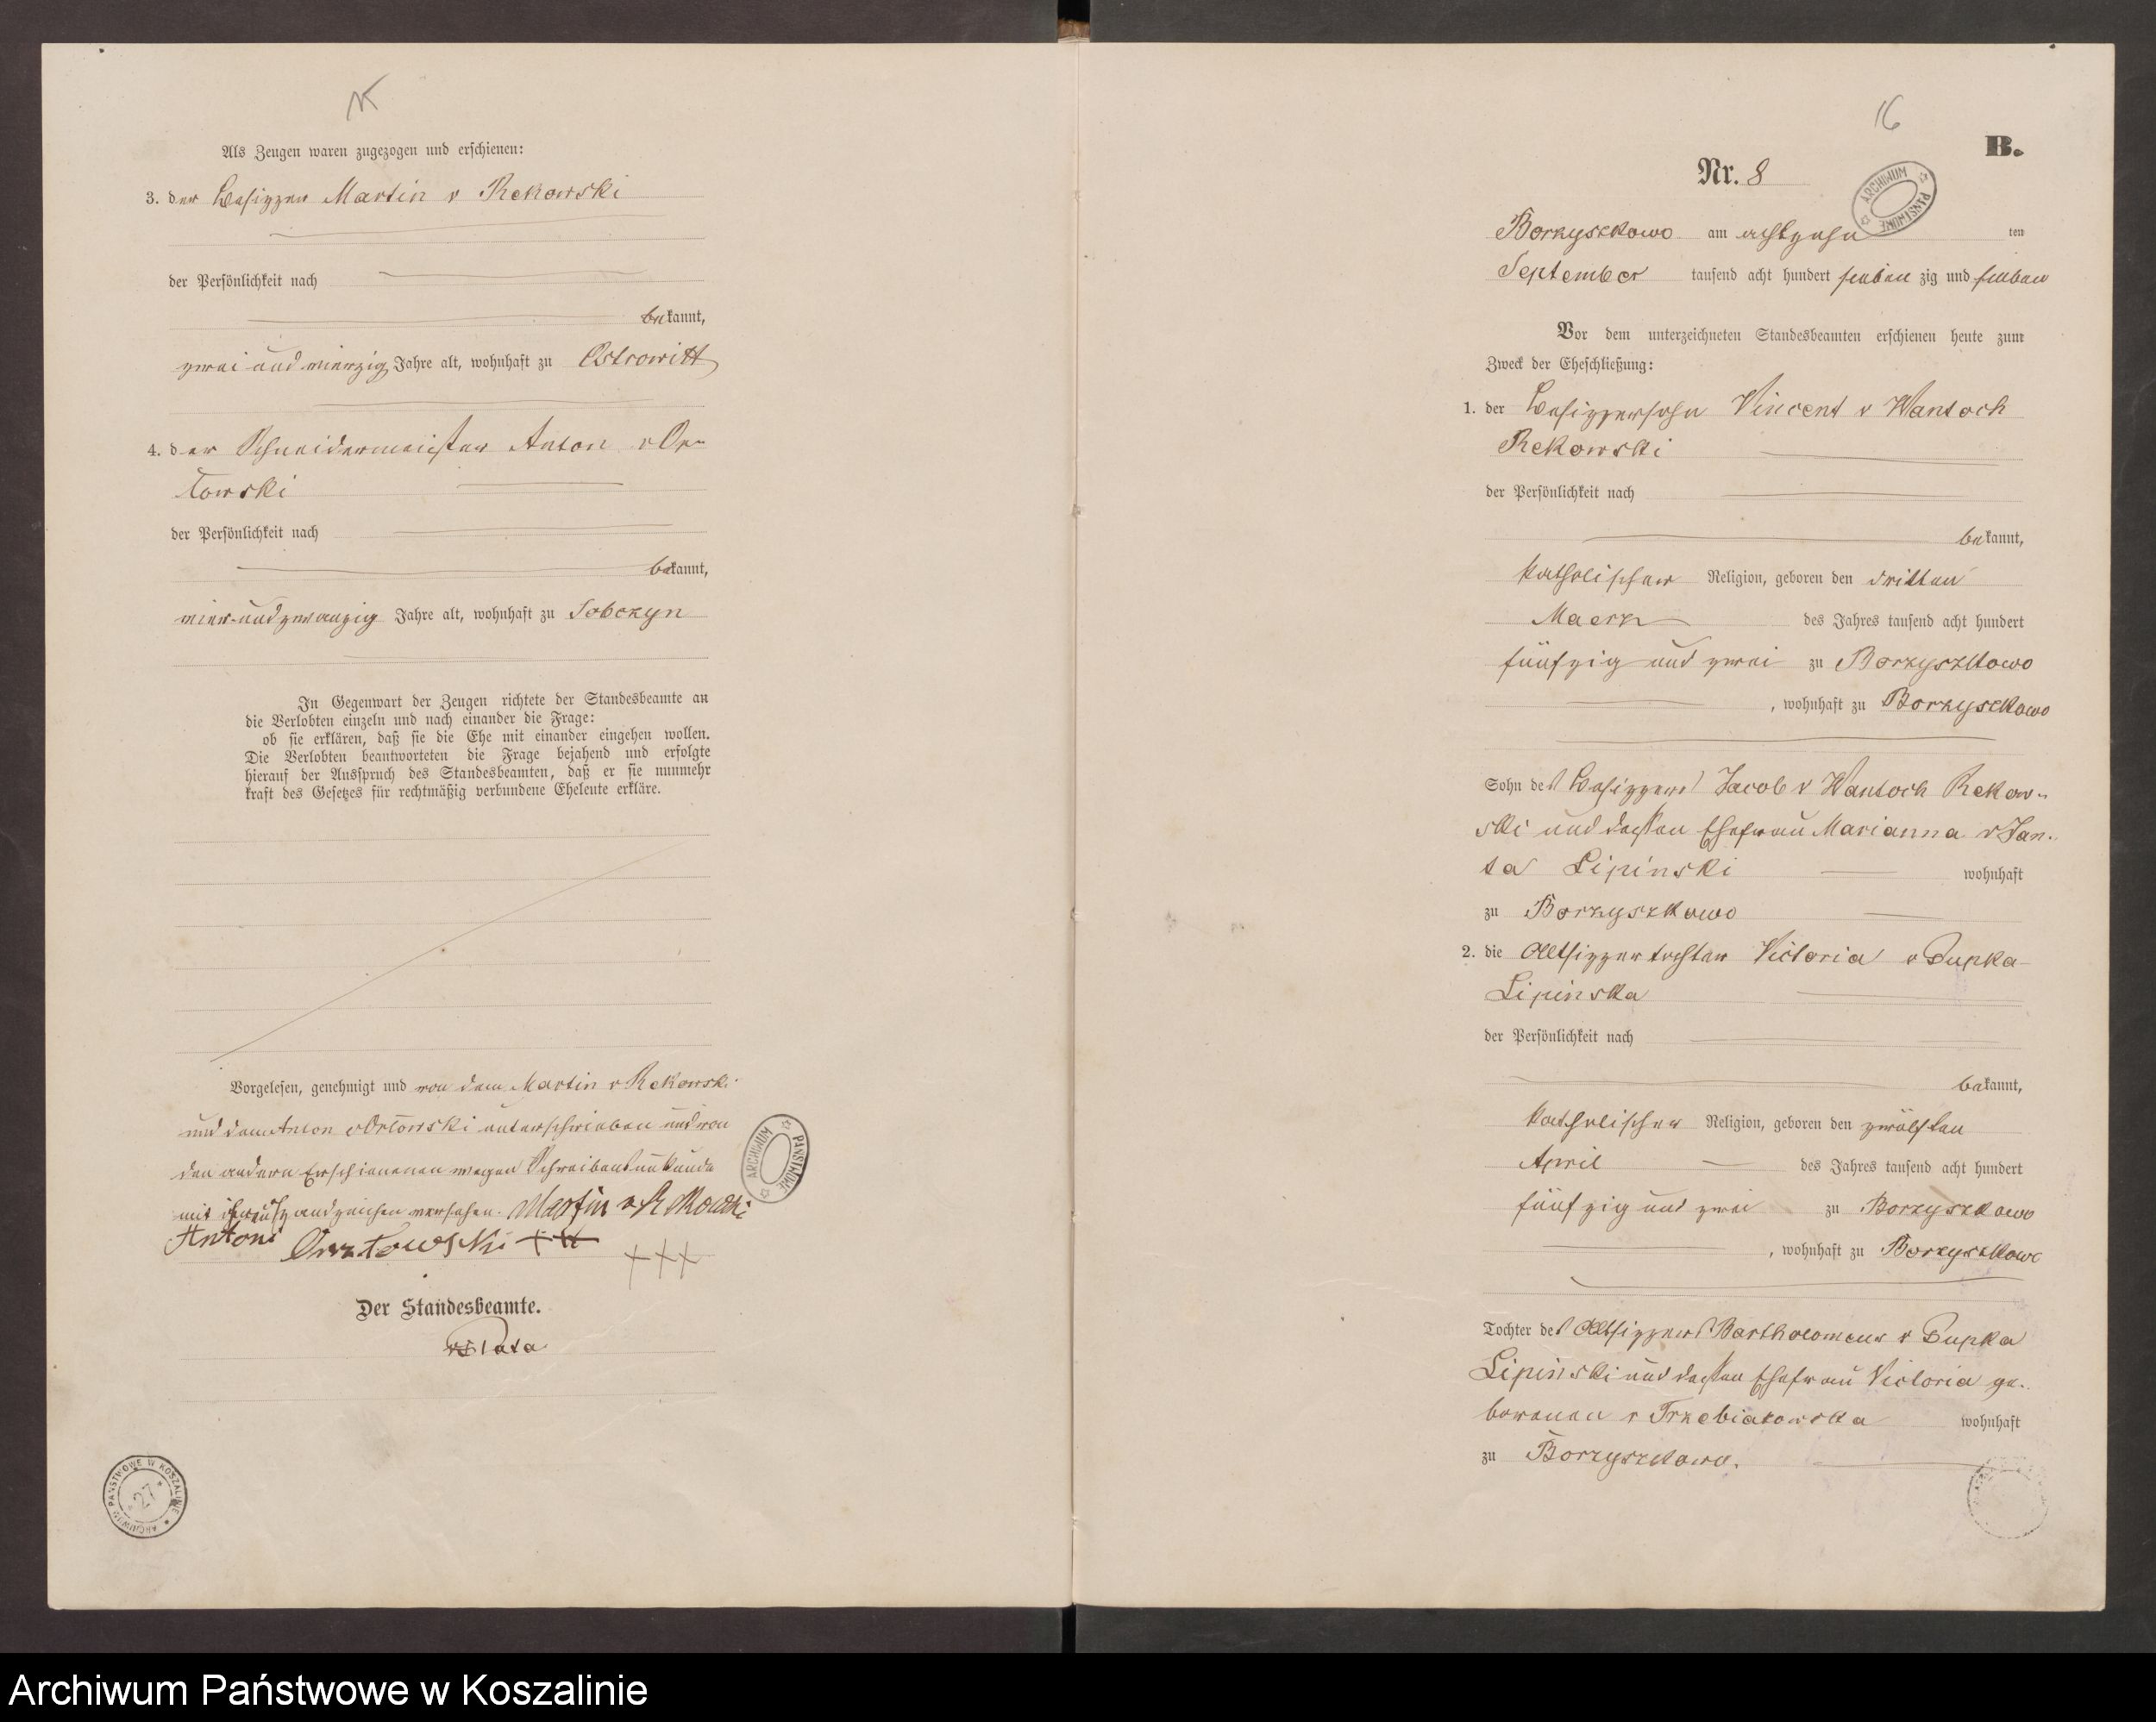 Als Zeugen waren zugezogen und erschienen:
3. der Besitzer Martin v Rekowski
der Persönlichkeit nach
bekannt,
zwei und vierzig Jahre alt, wohnhaft zu Ostrowitt
4. der Schneidermeister Anton v Or-
łowski
der Persönlichkeit nach
bekannt,
vier und zwanzig Jahre alt, wohnhaft zu Sobczyn
In Gegenwart der Zeugen richtete der Standesbeamte an
die Verlobten einzeln und nach einander die Frage:
ob sie erklären, daß sie die Ehe mit einander eingehen wollen.
Die Verlobten beantworteten die Frage bejahend und erfolgte
hierauf der Ausspruch des Standesbeamten, daß er sie nunmehr
kraft des Gesetzes für rechtmäßig verbundene Eheleute erkläre.
Vorgelesen, genehmigt und von dem Martin v Rekowski
und dem Anton v Orłowski unterschrieben und von
den andern Erschienenen wegen Schreibensunkunde
mit ihren Handzeichen versehen. Martin v
Antoni +++
+++
Der Standesbeamte.
ARCHIWUM PAŃSTWOWE
ARCHIWUM PAŃSTWOWE W KOSZALINIE
27
16
B.
Nr. 8
ARCHIWUM PAŃSTWOWE
Borzyszkowo am achtzehn ten
September tausend acht hundert sieben zig und sieben
Vor dem unterzeichneten Standesbeamten erschienen heute zum
Zweck der Eheschließung:
1. der Besitzersohn Vincent v Wantoch
Rekowski
der Persönlichkeit nach
bekannt,
katholischer Religion, geboren den dritten
Maerz des Jahres tausend acht hundert
fünfzig und zwei zu Borzyszkowo
, wohnhaft zu Borzyszkowo
Sohn des Besitzers Jacob v Wantoch Rekow-
ski und dessen Ehefrau Marianna v Jan-
ta Lipinski wohnhaft
zu Borzyszkowo
2. die Altsitzertochter Victoria v Pupka
Lipinska
der Persönlichkeit nach
bekannt,
katholischer Religion, geboren den zwölften
April des Jahres tausend acht hundert
fünfzig und zwei zu Borzyszkowo
, wohnhaft zu Borzyszkowo
Tochter des Altsitzers Bartholomeus v Pupka
Lipinski und dessen Ehefrau Victoria ge-
borenen v Trzebiatowska wohnhaft
zu Borzyszkowo.
Archiwum Państwowe w Koszalinie